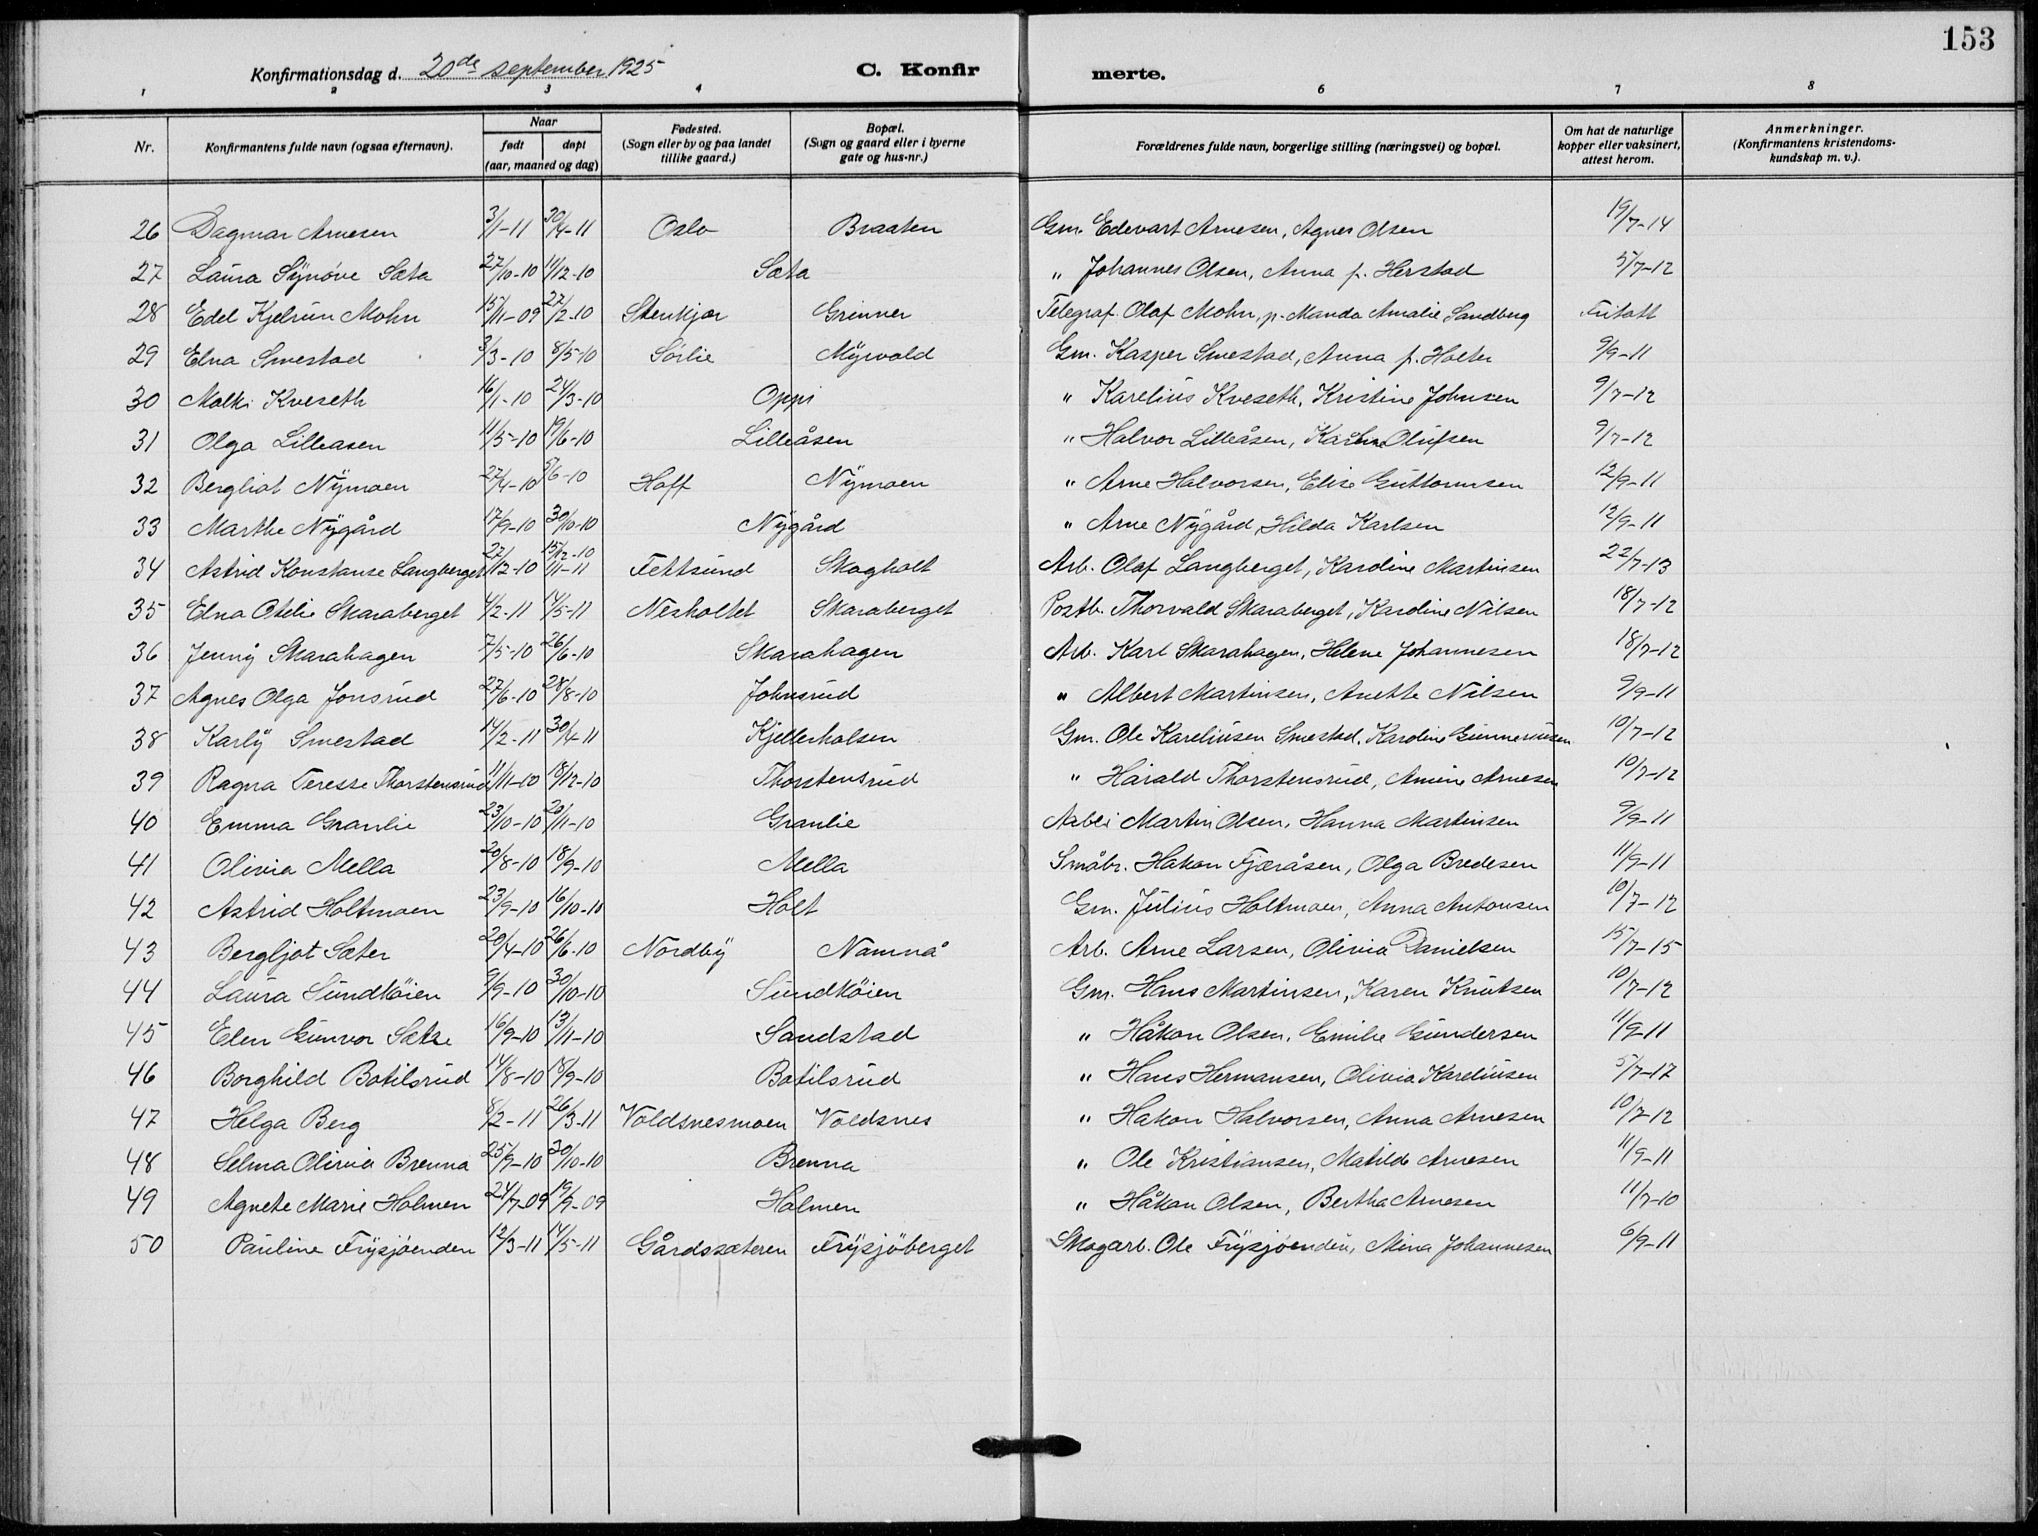 153
Konfirmationsdag d. 20de september 1925 C. Konfir merte.
1 2 3 4 6 7 8
Nr. Konfirmantens fulde navn (ogsaa efternavn). Naar født døpt (aar, maaned og dag) Fødested. (Sogn eller by og paa landet tillike gaard.) Bopæl. (Sogn og gaard eller i byerne gate og hus-nr.) Forældrenes fulde navn, borgerlige stilling (næringsvei) og bopæl. Om hat de naturlige kopper eller vaksinert, attest herom. Anmerkninger. (Konfirmantens kristendomskundskap m. v.).
26 Dagmar Arnesen 3/1-11 30/4-11 Oslo Braaten Gm. Edevart Arnesen, Agnes Olsen 19/7-14
27 Laura Synøve Sæta 27/10-10 11/12-10 Sæta " Johannes Olsen, Anna f. Herstad 5/7-12
28 Edel Kjelrun Mohn 15/11-09 27/2-10 Stenkjær Grinner Telegraf. Olaf Mohn, p. Manda Amalie Sandberg Fritatt
29 Elna Smestad 3/3-10 8/5-10 Sørlie Myrvold Gm. Kasper Smestad, Anna f. Holter 9/9-11
30 Molki Kveseth 16/1-10 24/3-10 Oppi " Karelius Kveseth, Kristine Johnsen 9/7-12
31 Olga Lilleasen 11/5-10 19/6-10 Lilleåsen " Halvor Lilleåsen, Olufsen 9/7-12
32 Bergliot Nymoen 27/4-10 5/6-10 Hoff Nymoen " Arne Halvorsen, Elise Guttormsen 12/9-11
33 Marthe Nygård 17/9-10 30/10-10 Nygård " Arne Nygård, Hilda Karlsen 12/9-11
34 Astrid Konstanse Langberget 27/12-10 1/1-11 Fettsund Skogholt Arb. Olaf Langberget, Karoline Martinsen 22/7-13
35 Elna Otelie Skaraberget 4/2-11 4/5-11 Nesholtet Skaraberget Postb. Thorvald Skaraberget, Karoline Nilsen 18/7-12
36 Jenny Skarahagen 7/5-10 26/6-10 Skarahagen Arb. Karl Skarahagen, Helene Johannesen 18/7-12
37 Agnes Olga Jonsrud 27/6-10 28/8-10 Johnsrud " Albert Martinsen, Anette Nilsen 9/9-11
38 Karly Smestad 14/2-11 30/4-11 Kjellerholsen Gm. Ole Kareliusen Smestad, Karoline Gunneriusen 10/7-12
39 Ragna Teresse Thorstensrud 11/11-10 18/12-10 Thorstensrud " Harald Thorstensrud, Amine Arnesen 10/7-12
40 Emma Granlie 23/10-10 20/11-10 Granlie Martin Olsen, Hanna Martinsen 9/9-11
41 Olivia Mella 20/8-10 18/9-10 Mella Småbr. Hakon Fjæråsen, Olga Bredesen 11/9-11
42 Astrid Holtmoen 23/9-10 16/10-10 Holt Gm. Julius Holtmoen, Anna Antonsen 10/7-12
43 Bergljot Sæter 20/4-10 26/6-10 Nordby Namnå Arb. Arne Larsen, Olivia Danielsen 15/7-15
44 Laura Sundkøien 9/9-10 30/10-10 Sundkøien Gm. Hans Martinsen, Karen Knutsen 10/7-12
45 Elen Gunvor Sætre 16/9-10 13/11-10 Sandstad " Håkon Olsen, Emilie Gundersen 11/9-11
46 Borghild Botilsrud 14/8-10 18/9-10 Botilsrud " Hans Hermansen, Olivia Kareliusen 5/7-17
47 Helga Berg 8/2-11 26/3-11 Voldsnesmoen Voldsnes " Hakon Halvorsen, Anna Arnesen 10/7-12
48 Selma Olivia Brenna 25/9-10 30/10-10 Brenna " Ole Kristiansen, Matilde Arnesen 11/9-11
49 Agnete Marie Holmen 24/7-09 19/9-09 Holmen " Håkon Olsen, Bertha Arnesen 11/7-10
50 Pauline Frysjøenden 12/3-11 14/5-11 Gårdssæteren Frysjøberget Skogarb. Ole Frysjøenden, Mina Johannesen 6/9-11